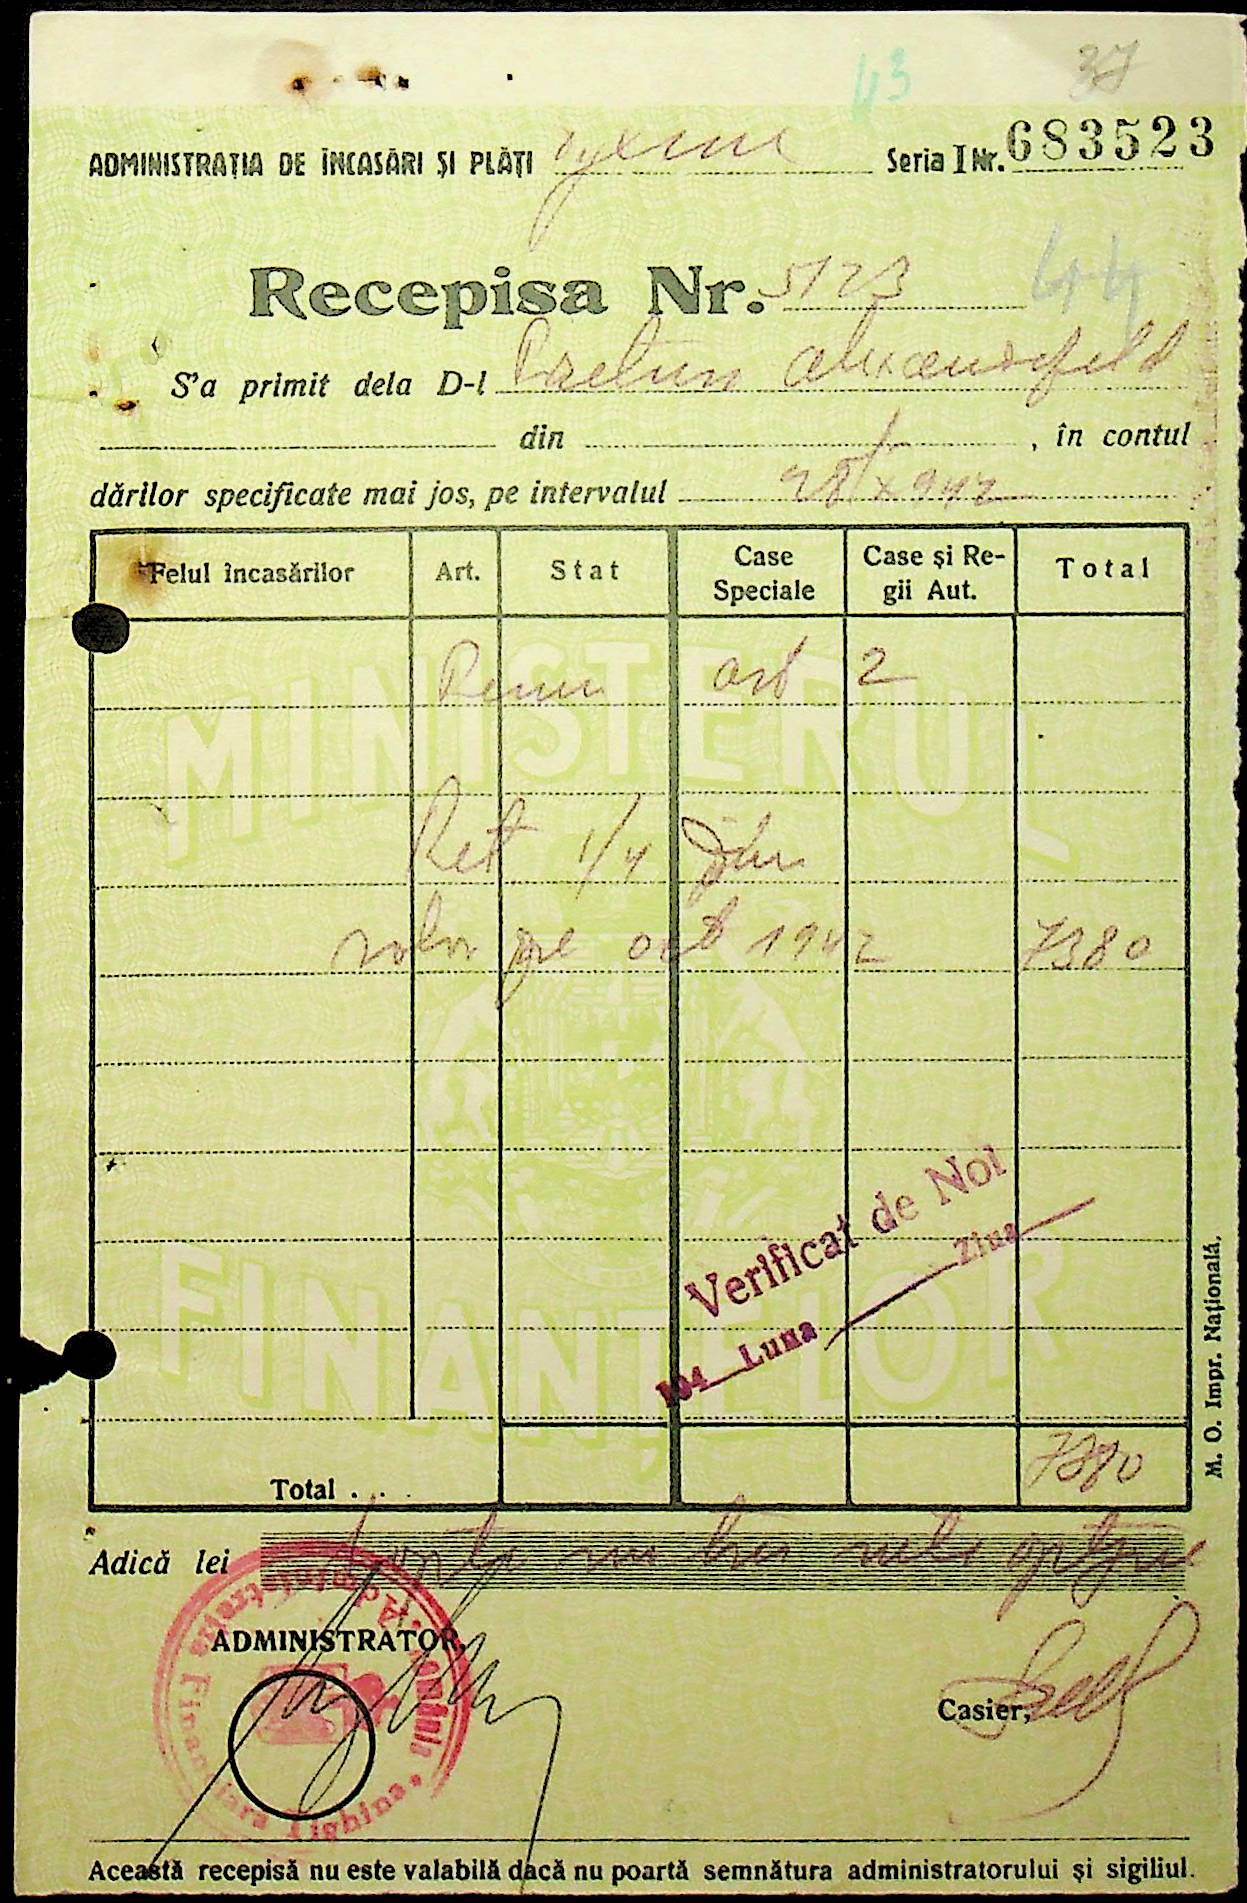 43 37
ADMINISTRAȚIA DE ÎNCASĂRI ȘI PLĂȚI Seria I Nr. 683523
44
Recepisa Nr. 5123
S'a primit dela D-l
din , în contul
dărilor specificate mai jos, pe intervalul 28/X 942
Felul încasărilor Art. Stat Case Speciale Case și Regii Aut. Total
2
Ret 1/4
pe oct 1942 7380
MINISTERUL
FINANȚELOR
Verificat de Noi
194 Luna Ziua
Total . . . 7380
Adică lei
ADMINISTRATOR,
Casier,
România • Administrația Financiara Tighina •
Această recepisă nu este valabilă dacă nu poartă semnătura administratorului și sigiliul.
M. O. Impr. Națională.